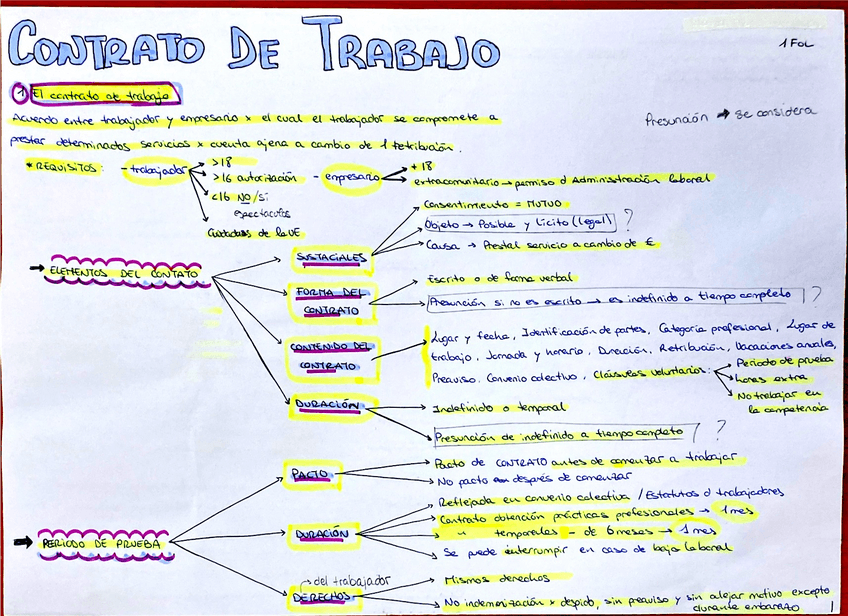 CONTRATO DE TRABAJO
1 FOL
1 El contrato de trabajo
Acuerdo entre trabajador y empresario x el cual el trabajador se compromete a
prestar determinados servicios x cuenta ajena a cambio de 1 retribución.
Presunción → se considera
* REQUISITOS: - trabajador
>18
>16 autorización
<16 NO/si
espectaculos
Ciudadanos de la UE
- empresario
+18
extracomunitario → permiso d Administración laboral
→ ELEMENTOS DEL CONTATO
SUSTACIALES
Consentimiento = MUTUO
Objeto → Posible y lícito (legal) ?
Causa → Prestar servicio a cambio de €
FORMA DEL
CONTRATO
Escrito o de forma verbal
Presunción si no es escrito → es indefinido a tiempo completo ?
CONTENIDO DEL
CONTRATO
Lugar y fecha, Identificación de partes, Categoría profesional, Lugar de
trabajo, Jornada y horario, Duración, Retribución, Vacaciones anuales,
Preaviso, Convenio colectivo, Cláusulas voluntarias:
Periodo de prueba
Horas extra
No trabajar en
la competencia
DURACIÓN
Indefinido o temporal
Presunción de indefinido a tiempo completo ?
→ PERIODO DE PRUEBA
PACTO
Pacto de CONTRATO antes de comenzar a trabajar
No pacto después de comenzar
DURACIÓN
Reflejada en convenio colectivo / Estatutos d trabajadores
Contrato obtención prácticas profesionales → 1 mes
" temporales - de 6 meses → 1 mes
Se puede interrumpir en caso de baja laboral
del trabajador
DERECHOS
Mismos derechos
No indemenización x despido, sin preaviso y sin alejar motivo excepto
durante embarazo
1